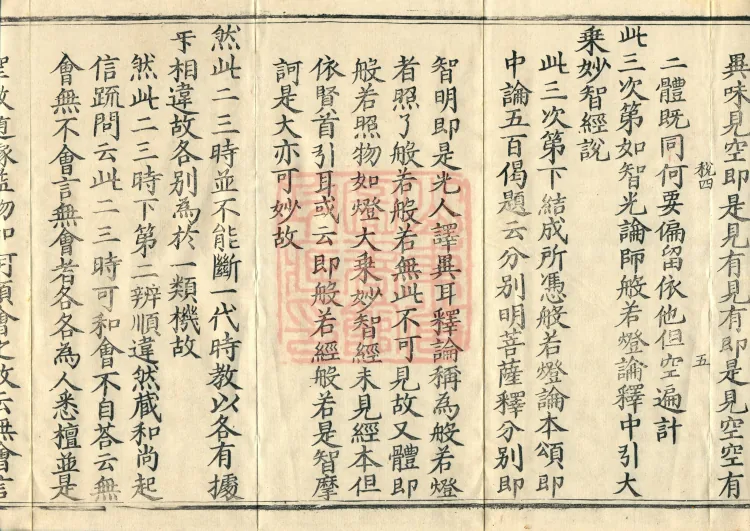 異味見空即是見有見有即是見空空有
税四
五
二體既同何要偏留依他但空遍計
此三次第如智光論師般若燈論釋中引大
乗妙智經說
此三次第下結成所憑般若燈論本頌即
中論五百偈題云分別明菩薩釋分別即
智明即是光人譯異耳釋論稱為般若燈
者照了般若般若無此不可見故又體即
般若照物如燈大乗妙智經未見經本但
依賢首引耳或云即般若經般若是智摩
訶是大亦可妙故
然此二三時並不能斷一代時教以各有據
不相違故各別為於一類機故
然此二三時下第二辨順違然蔵和尚起
信䟽問云此二三時可和會不自答云無
會無不會言無會者各各為人悉檀並是